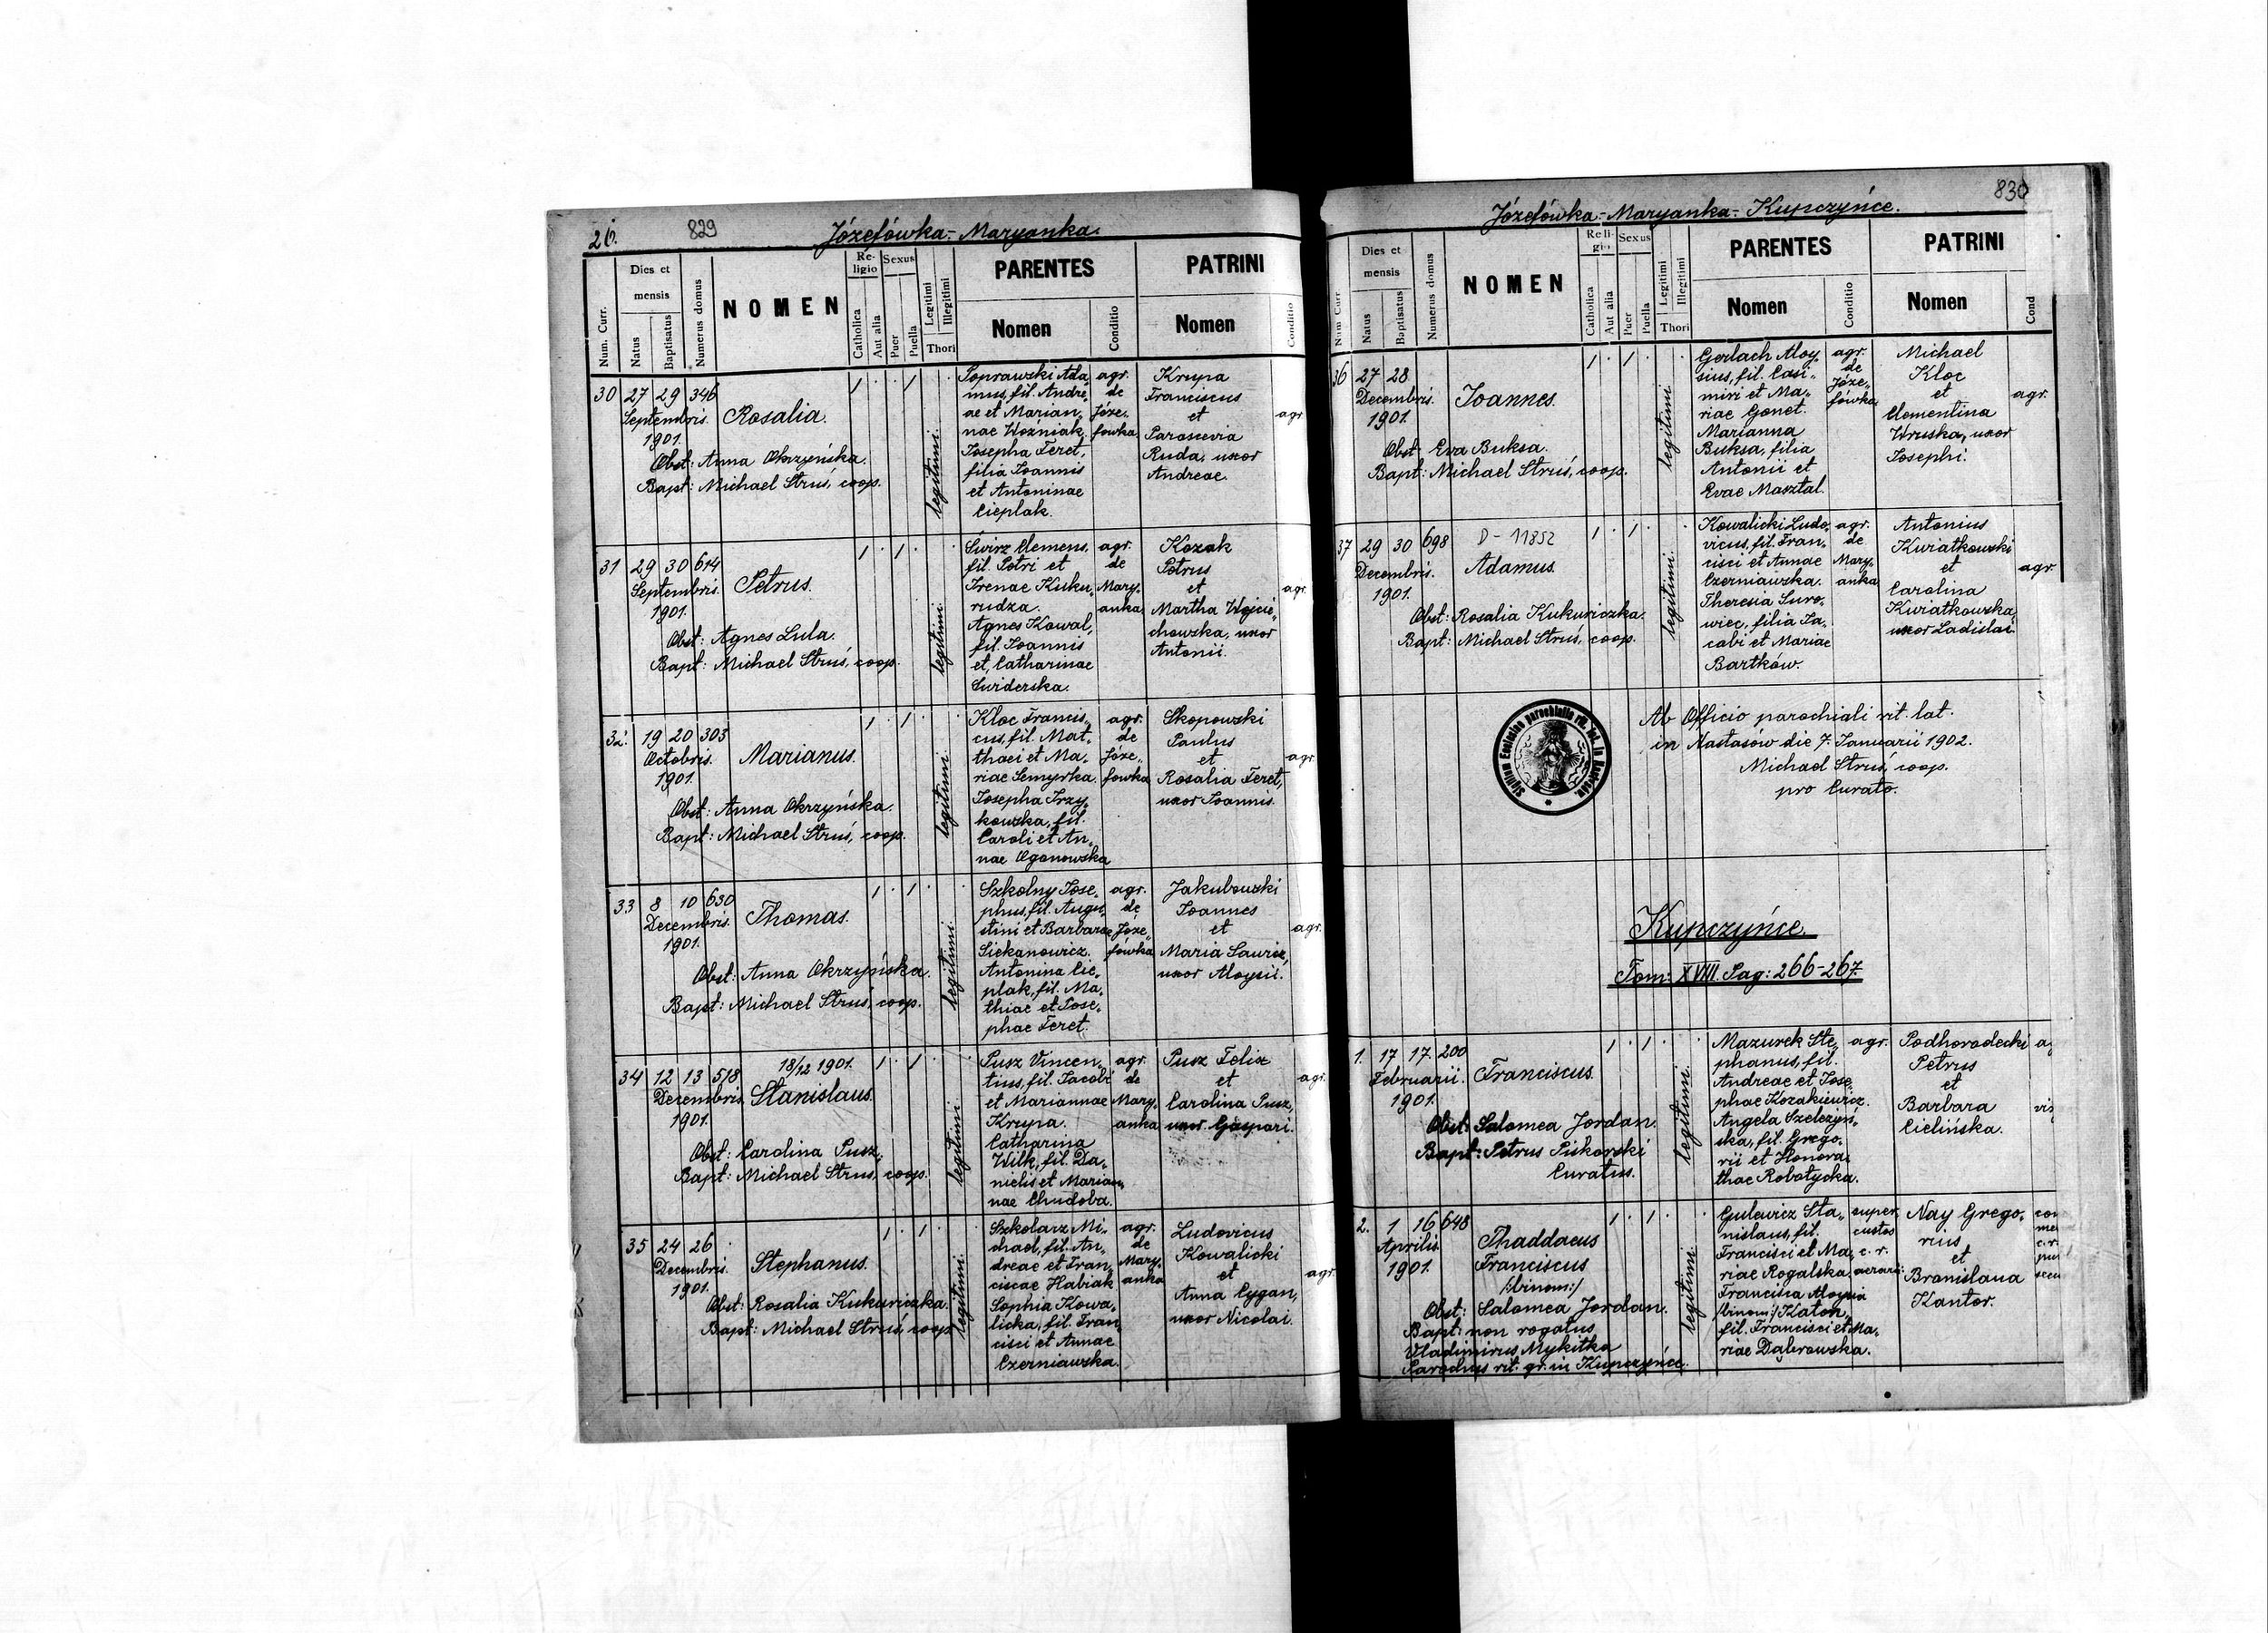 26. 829 Józefówka - Maryanka.
Num. Curr.
Dies et mensis
Natus
Baptisatus
Numerus domus
NOMEN
Religio
Catholica
Aut alia
Sexus
Puer
Puella
Legitimi
Illegitimi
Thori
PARENTES
Nomen
Conditio
PATRINI
Nomen
Conditio
30 27 29 346
Septembris.
1901.
Rosalia.
Obst: Anna Okrzyńska.
Bapt: Michael Struś, coop.
legitimi.
Poprawski Ada„
mus, fil. Andre„
ae et Marian„
nae Woźniak.
Josepha Feret,
filia Joannis
et Antoninae
Cieplak.
agr.
de
Józe„
fowka
Krupa
Franciscus
et
Parascevia
Ruda, uxor
Andreae.
agr.
31 29 30 614
Septembris.
1901.
Petrus.
Obst: Agnes Lula.
Bapt: Michael Struś, coop.
legitimi
Świrz Clemens,
fil. Petri et
Irenae Kuku„
rudza.
Agnes Kowal,
fil. Joannis
et Catharinae
Świderska.
agr.
de
Mary„
anka
Kozak
Petrus
et
Martha Wojcie„
chowska, uxor
Antonii.
agr.
32. 19 20 303
Octobris.
1901.
Marianus.
Obst: Anna Okrzyńska.
Bapt: Michael Struś, coop.
legitimi.
Kloc Francis„
cus, fil. Mat„
thaei et Ma„
riae Semyrka.
Josepha Irzy„
kowska, fil.
Caroli et An„
nae Ogonowska
agr.
de
Józe„
fowka
Skopowski
Paulus
et
Rosalia Feret,
uxor Joannis.
agr.
33 8 10 630
Decembris.
1901.
Thomas.
Obst: Anna Okrzyńska.
Bapt: Michael Struś, coop.
legitimi.
Szkolny Jose„
phus, fil. Augu„
stini et Barbarae
Siekanowicz.
Antonina Cie„
plak, fil. Ma„
thiae et Jose„
phae Feret.
agr.
de
Józe„
fówka
Jakubowski
Joannes
et
Maria Saurie,
uxor Aloysii.
agr.
34 12 13 518
Decembris.
1901.
18/12 1901.
Stanislaus.
Obst: Carolina Pusz,
Bapt: Michael Struś, coop.
legitimi
Pusz Vincen„
tius, fil. Jacobi
et Mariannae
Krupa.
Catharina
Wilk, fil. Da„
nielis et Marian„
nae Chudoba.
agr.
de
Mary„
anka
Pusz Felix
et
Carolina Pusz,
uxor Gaspari.
agr.
35 24 26
Decembris.
1901.
Stephanus.
Obst: Rosalia Kukuriczka.
Bapt: Michael Struś, coop.
legitimi.
Szkolarz Mi„
chael, fil. An„
dreae et Fran„
ciscae Habiak
Sophia Kowa„
licka, fil. Fran„
cisci et Annae
Czerniawska.
agr.
de
Mary„
anka
Ludovicus
Kowalicki
et
Anna Cygan,
uxor Nicolai.
agr.
Józefówka - Maryanka - Kupczyńce. 830
Num Curr.
Dies et mensis
Natus
Baptisatus
Numerus domus
NOMEN
Religio
Catholica
Aut alia
Sexus
Puer
Puella
Legitimi
Illegitimi
Thori
PARENTES
Nomen
Conditio
PATRINI
Nomen
Cond
36 27 28
Decembris.
1901.
Joannes.
Obst: Eva Buksa.
Bapt: Michael Struś, coop.
legitimi
Gerlach Aloy„
sius, fil. Casi„
miri et Ma„
riae Gonet.
Marianna
Buksa, filia
Antonii et
Evae Masztal.
agr.
de
Józe„
fówka
Michael
Kloc
et
Clementina
Wruska, uxor
Josephi.
agr.
37 29 30 698
Decembris.
1901.
D - 11852
Adamus.
Obst: Rosalia Kukuriczka.
Bapt: Michael Struś, coop.
legitimi.
Kowalicki Ludo„
vicus, fil. Fran„
cisci et Annae
Czerniawska.
Theresia Suro„
wiec, filia Ja„
cobi et Mariae
Bartków.
agr.
de
Mary„
anka
Antonius
Kwiatkowski
et
Carolina
Kwiatkowska
uxor Ladislai.
agr.
Ab Officio parochiali rit. lat.
in Nastasów die 7. Januarii 1902.
Michael Struś, coop.
pro Curato.
Kupczyńce.
Tom: XVIII. Pag: 266-267.
1. 17 17 200
Februarii.
1901.
Franciscus.
Obst: Salomea Jordan.
Bapt: Petrus Piskorski
Curatus.
legitimi.
Mazurek Ste„
phanus, fil.
Andreae et Jose„
phae Kozakiewicz.
Angela Szelczyń„
ska, fil. Grego„
rii et Honora„
thae Robotycka.
agr.
Podhorodecki
Petrus
et
Barbara
Cielińska.
2. 1 16 648
Aprilis.
1901.
Thaddaeus
Franciscus
/:binom:/
Obst: Salomea Jordan.
Bapt: non rogatus
Vladimirus Mykitka
Parochus rit. gr. in Kupczyńce.
legitimi
Gulewicz Sta„
nislaus, fil.
Francisci et Ma„
riae Rogalska.
Francisca Aloysia
/:binom:/ Katon,
fil. Francisci et Ma„
riae Dąbrowska.
super„
custos
c. r.
aerarii
Nay Grego„
rius
et
Bronislaua
Kantor.